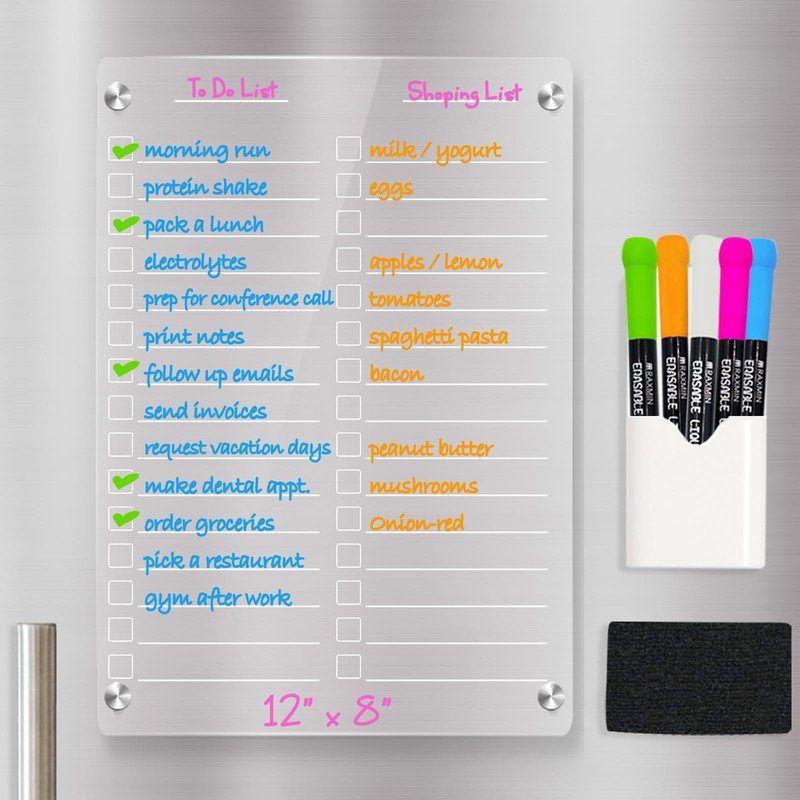 To Do List
Shoping List
morning run
protein shake
pack a lunch
electrolytes
prep for conference call
print notes
follow up emails
send invoices
request vacation days
make dental appt.
order groceries
pick a restaurant
gym after work
milk / yogurt
eggs
apples / lemon
tomatoes
spaghetti pasta
bacon
peanut butter
mushrooms
Onion-red
12" x 8"
RAXMIN
ERASABLE
RAXMIN
ERASABLE
RAXMIN
ERASABLE LIQU
RAXMIN
ERASABLE
RAXMIN
ERASABLE